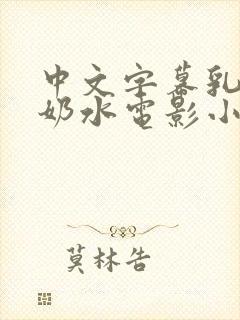 中文字幕乳
奶水电影小
莫林告